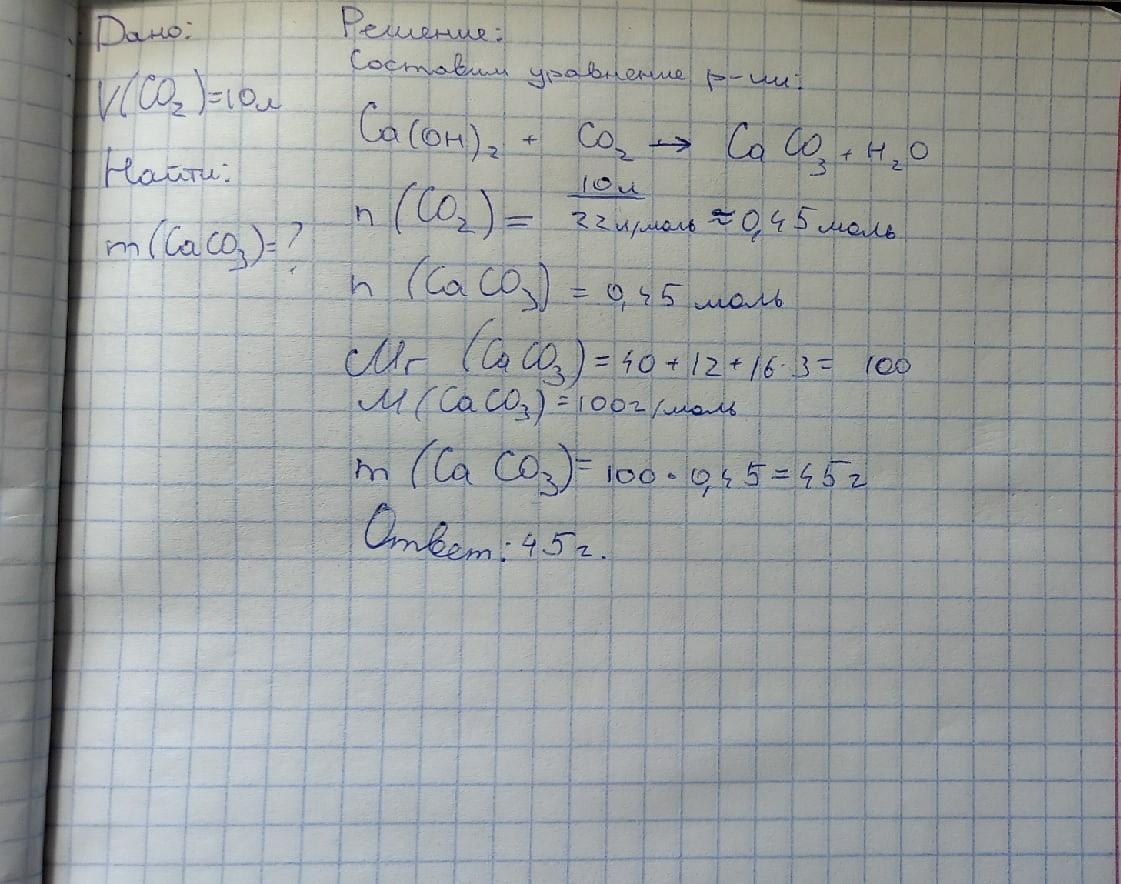 Дано:
V(CO₂)=10л
Найти:
m(CaCO₃)=?
Решение:
Составим уравнение р-ии:
Ca(OH)₂ + CO₂ → CaCO₃ + H₂O
n(CO₂) = 10л / 22л/моль ≈ 0,45 моль
n(CaCO₃) = 0,45 моль
Mr(CaCO₃) = 40 + 12 + 16·3 = 100
M(CaCO₃) = 100г/моль
m(CaCO₃) = 100·0,45 = 45г
Ответ: 45г.